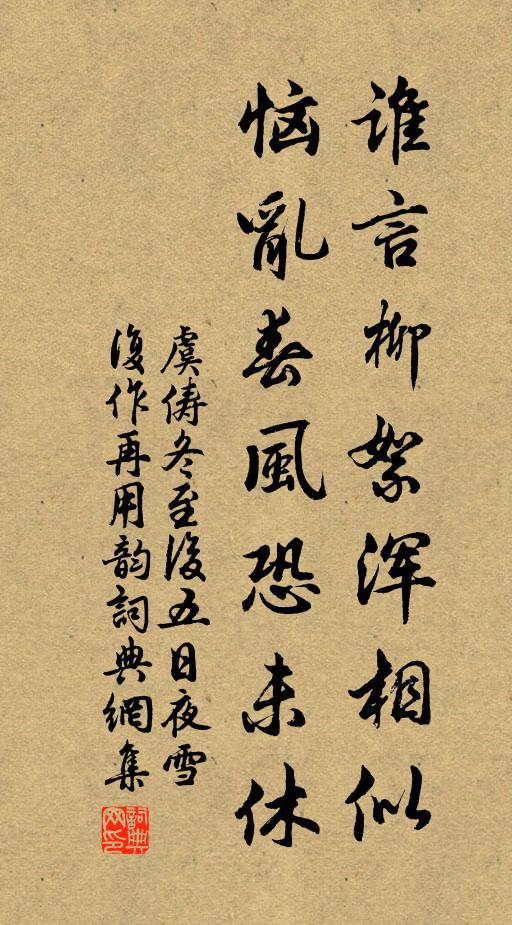 谁言柳絮浑相似
恼亂春風恐未休
虞俦冬至後五日夜雪
復作再用韵詞典網集
詞典网印